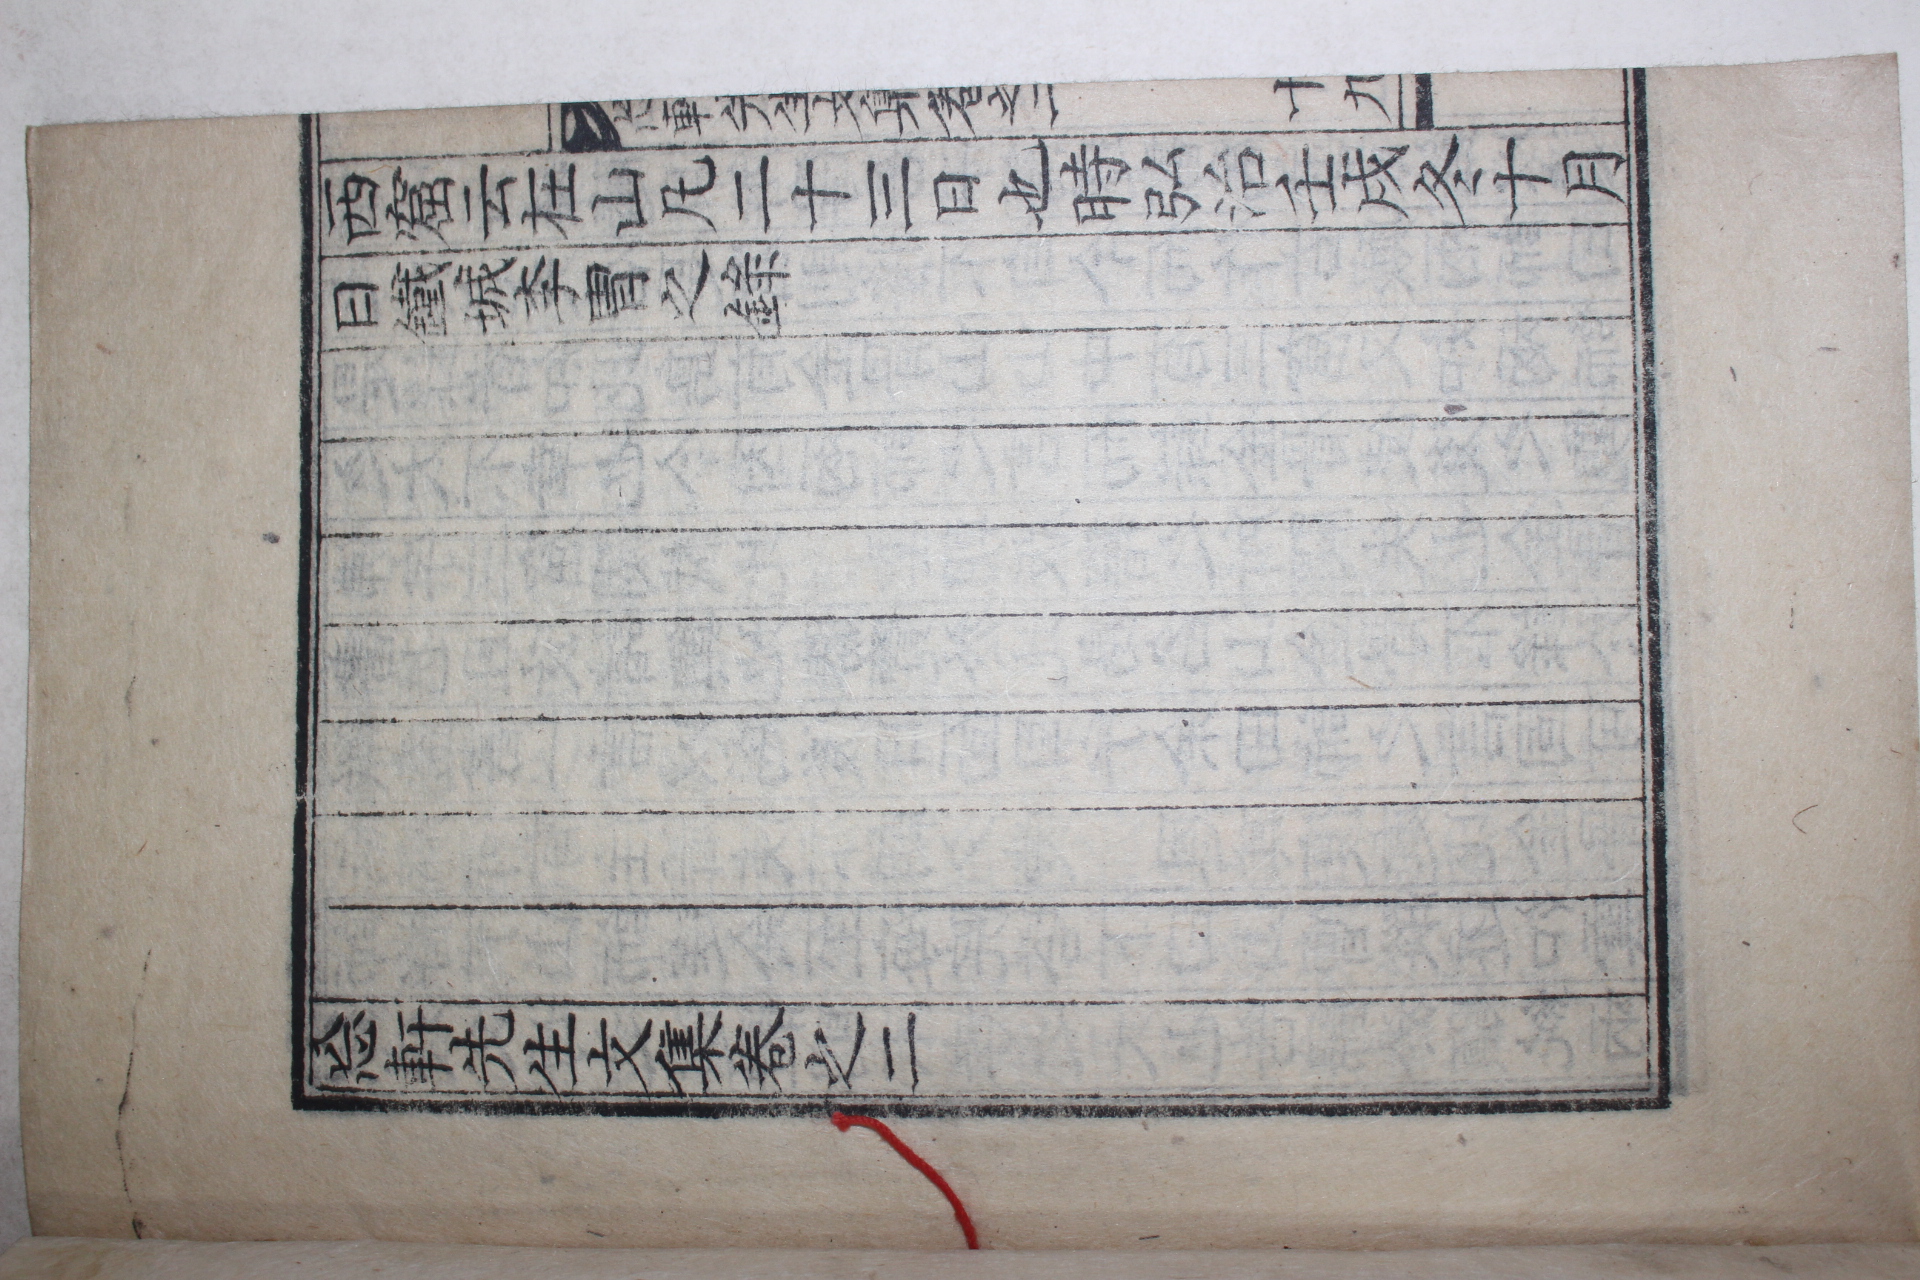 忘軒先生文集卷之二 十九
西窟云在山凡二十三日也時弘治壬戌冬十月
日鐵城李胄之錄
忘軒先生文集卷之二